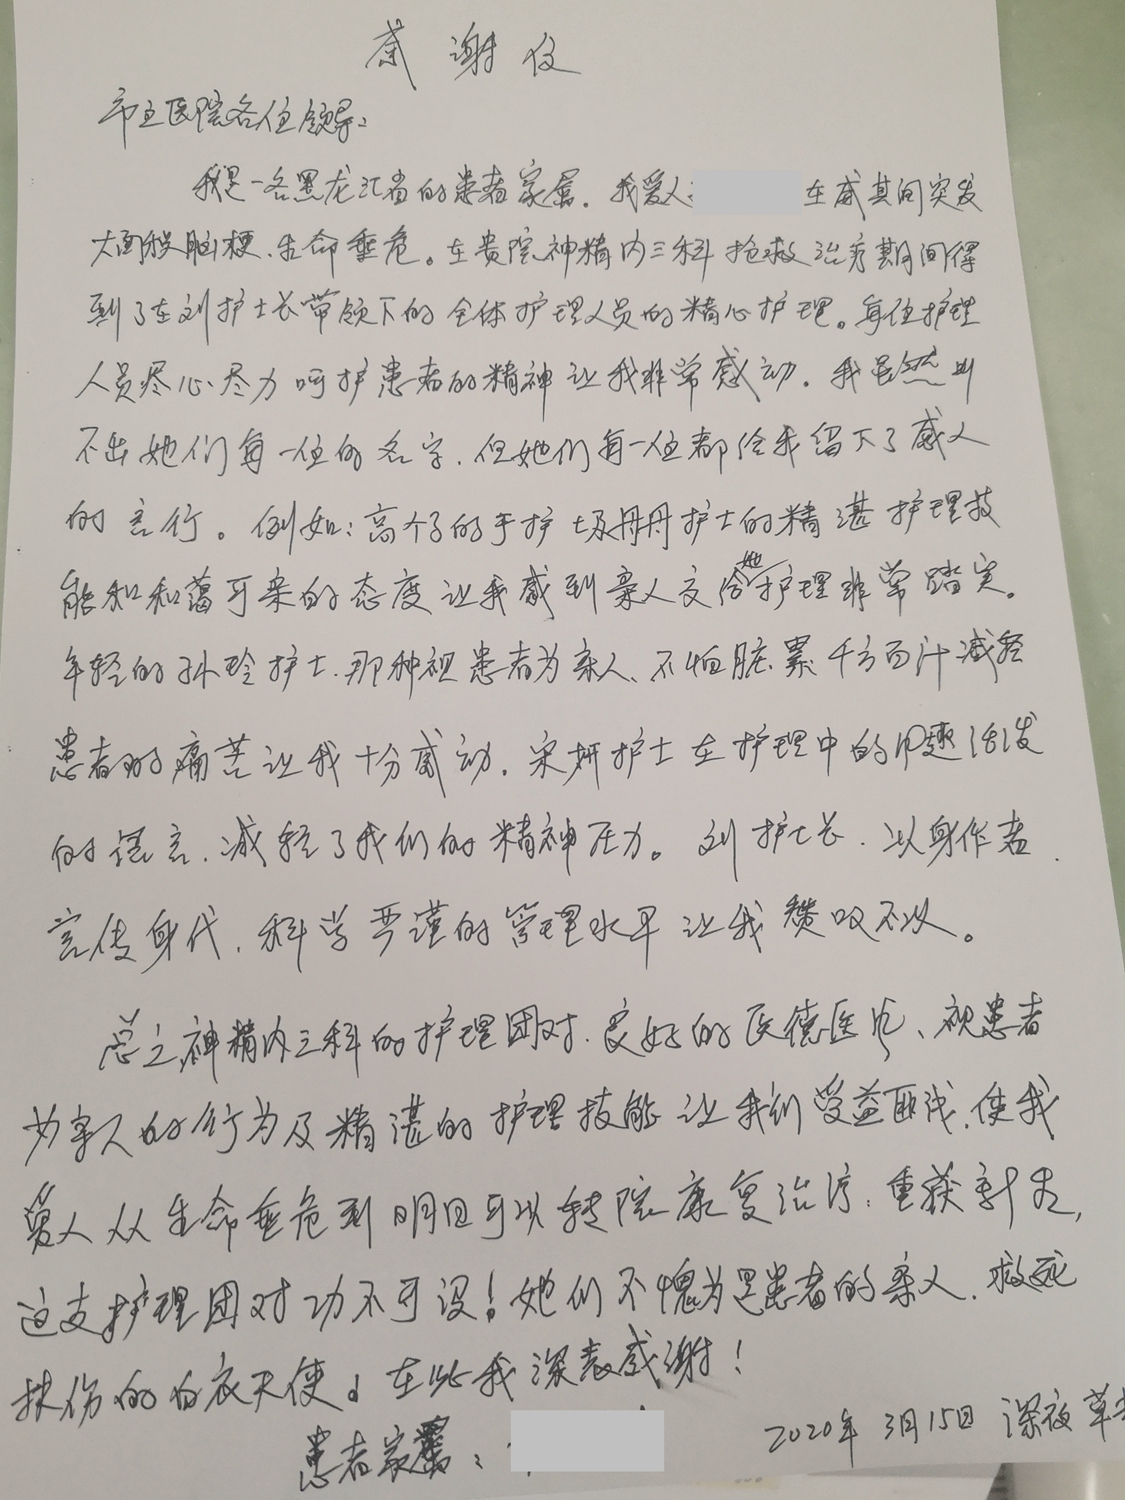 感谢信
市立医院各位领导：
我是一名黑龙江省的患者家属。我爱人 在威其间突发
大面积脑梗、生命垂危。在贵院神精内三科抢救治疗期间得
到了在刘护士长带领下的全体护理人员的精心护理。每位护理
人员尽心尽力呵护患者的精神让我非常感动。我虽然叫
不出她们每一位的名字、但她们每一位都给我留下了感人
的言行。例如：高个子的于护士及丹丹护士的精湛护理技
能和和蔼可亲的态度让我感到亲人交给她护理非常踏实。
年轻的孙玲护士、那种视患者为亲人、不怕脏累千方百计减轻
患者的痛苦让我十分感动。宋妍护士在护理中的风趣活泼
的语言、减轻了我们的精神压力。刘护士长、以身作者、
言传身代、科学严谨的管理水平让我赞叹不以。
总之神精内三科的护理团对、良好的医德医风、视患者
为亲人的行为及精湛的护理技能让我们受益匪浅、使我
爱人从生命垂危到明日可以转院康复治疗、重获新生，
这支护理团对功不可没！她们不愧为是患者的亲人、救死
扶伤的白衣天使。在此我深表感谢！
患者家属：
2020年3月15日 深夜草